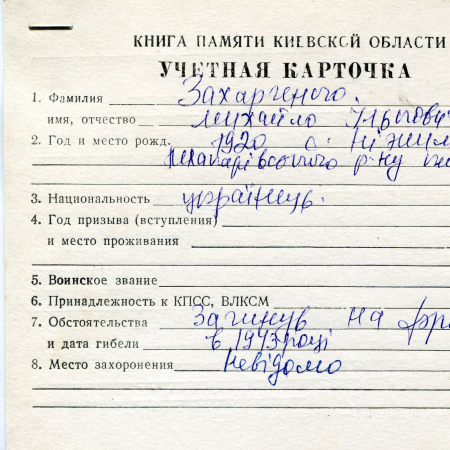 КНИГА ПАМЯТИ КИЕВСКОЙ ОБЛАСТИ
УЧЕТНАЯ КАРТОЧКА
1. Фамилия Захарченко.
имя, отчество Михайло
2. Год и место рожд. 1920 с.
Макарівського р-ну
3. Национальность українець.
4. Год призыва (вступления)
и место проживания
5. Воинское звание
6. Принадлежность к КПСС, ВЛКСМ
7. Обстоятельства Загинув на
и дата гибели в 1943 році
8. Место захоронения Невідомо